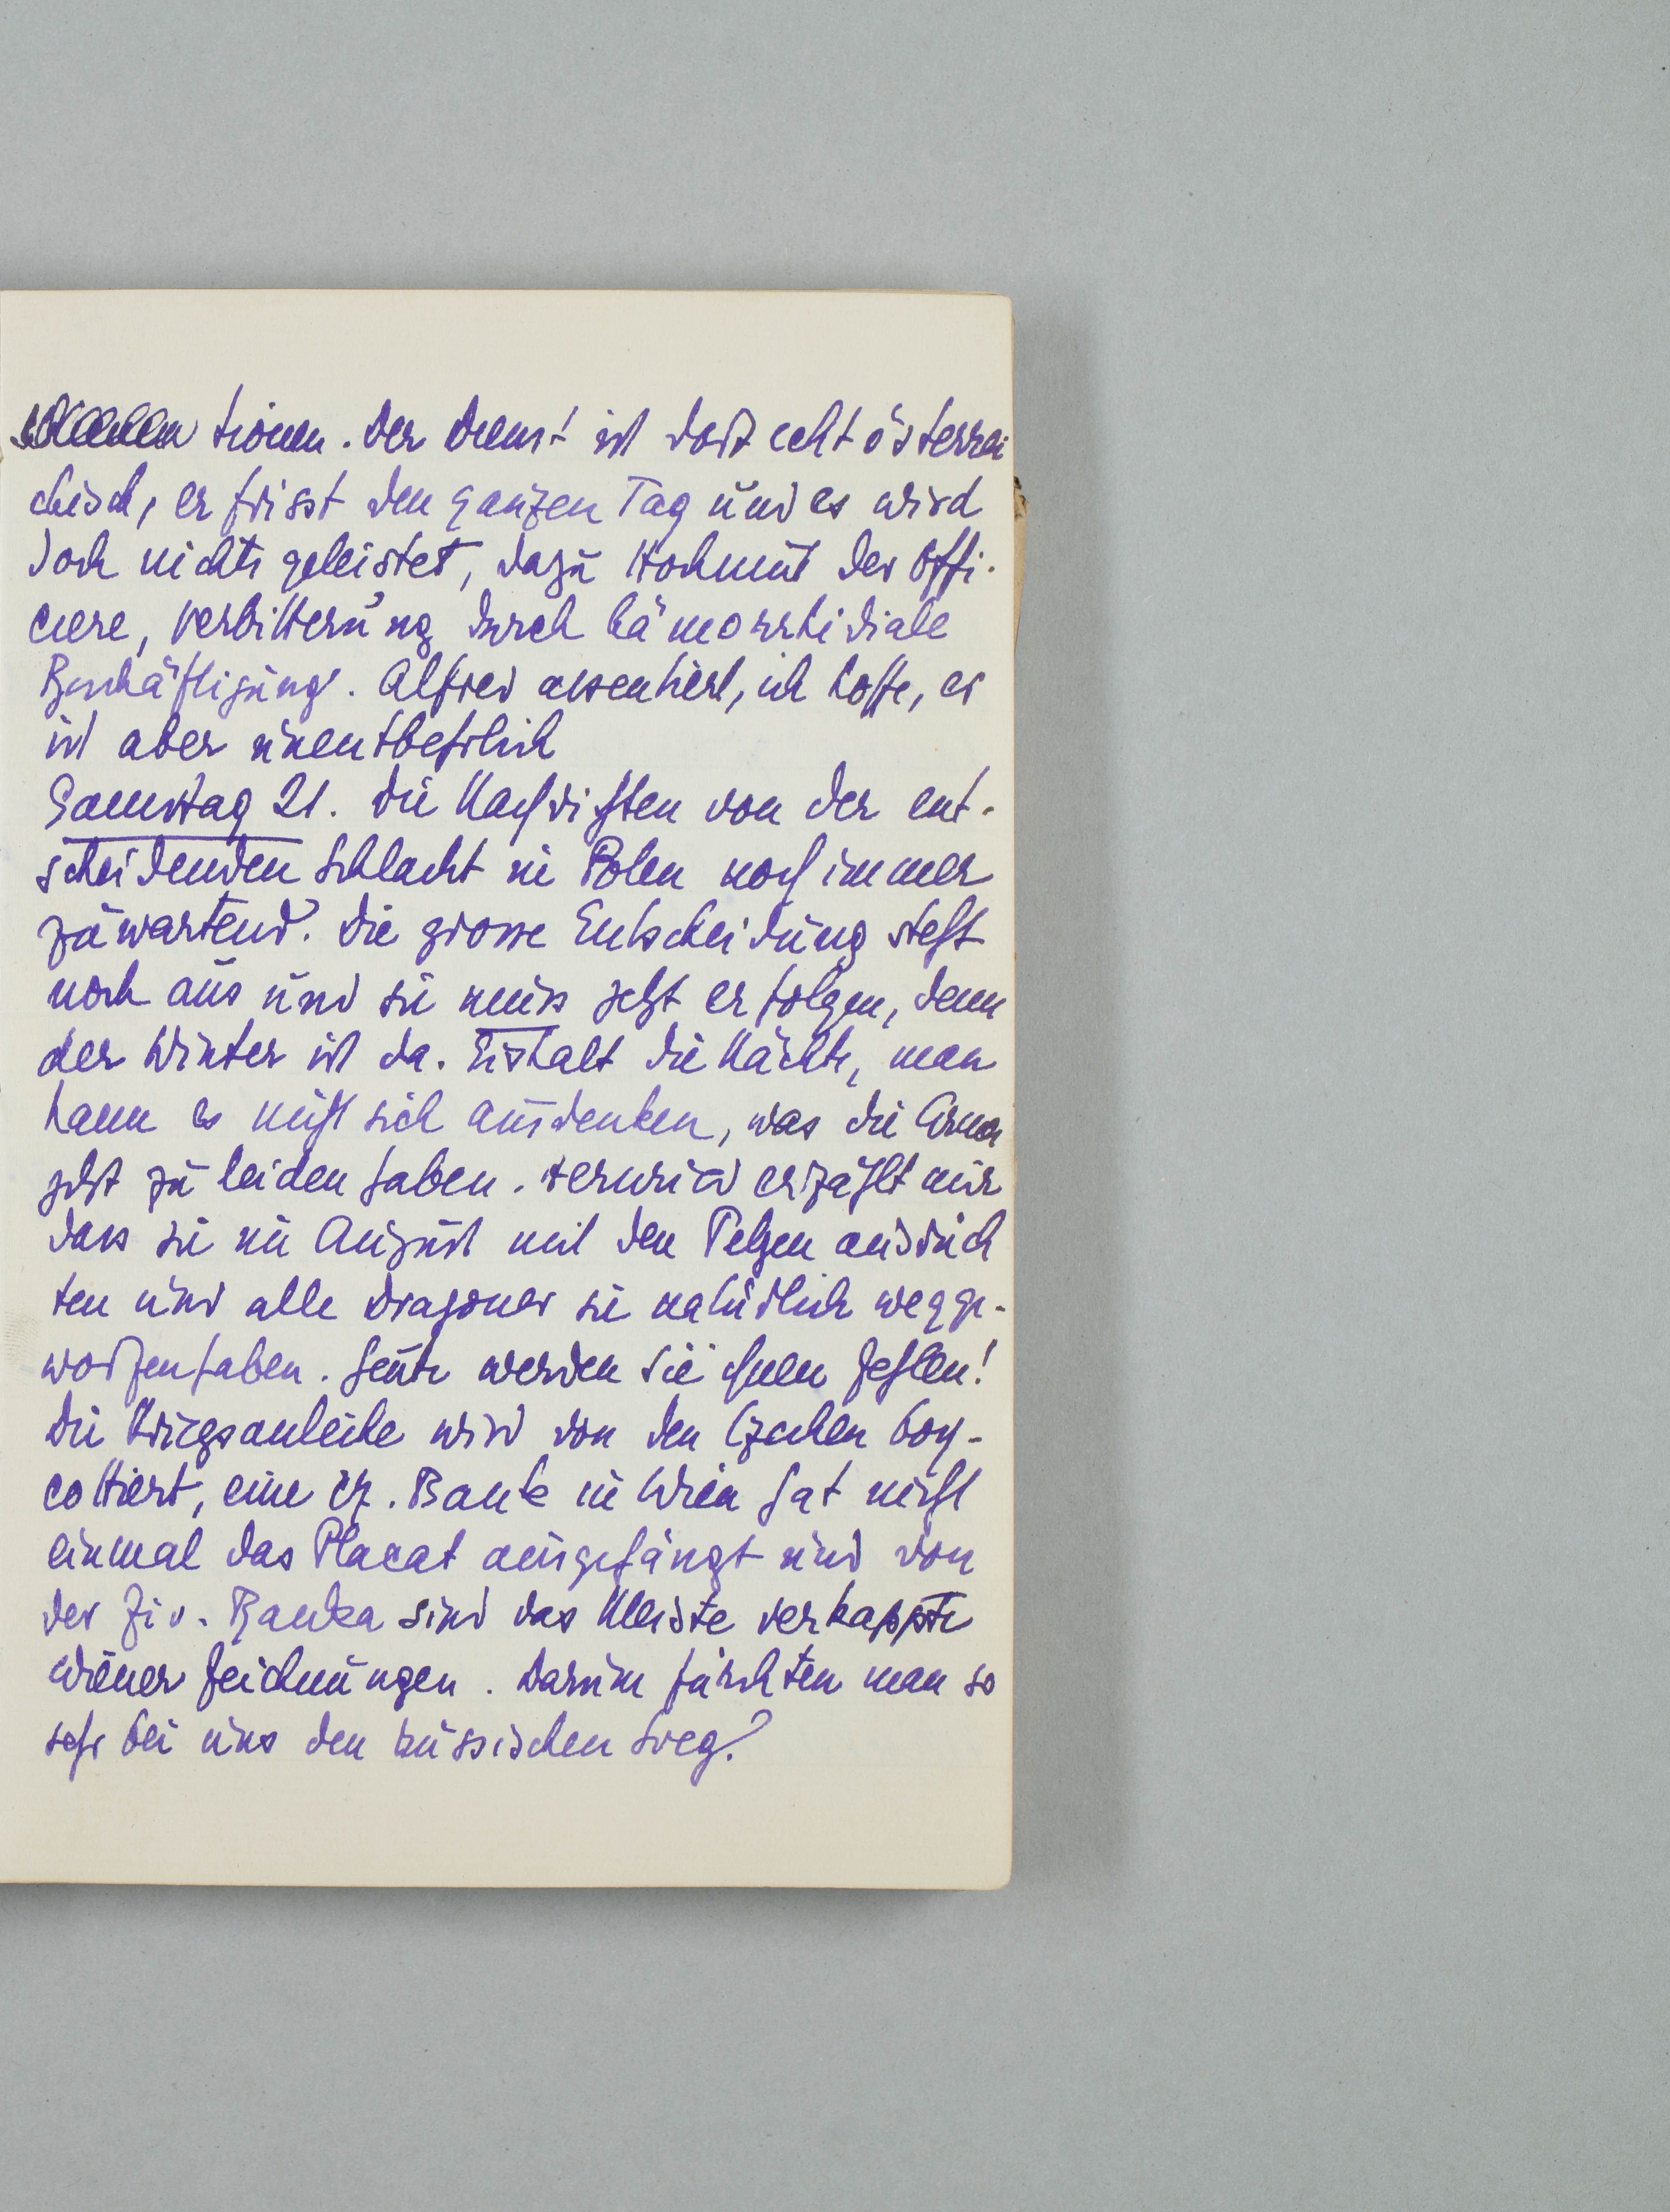 tionen. Der Dienst ist dort echt österrei
chisch, er frisst den ganzen Tag und es wird
doch nichts geleistet, dazu Hochmut der Offi-
ciere, Verbitterung durch hämorrhidiale
Beschäftigung. Alfred assentiert, ich hoffe, er
ist aber unentbehrlich
Samstag 21. Die Nachrichten von der ent-
scheidenden Schlacht in Polen noch immer
zuwartend. Die grosse Entscheidung steht
noch aus und sie muss jetzt erfolgen, denn
der Winter ist da. Eiskalt die Nächte, man
kann es nicht sich ausdenken, was die Armen
jetzt zu leiden haben. erzählt mir
dass sie im August mit den Pelzen ausrück
ten und alle Dragoner sie natürlich wegge-
worfen haben. Heute werden sie ihnen fehlen!
Die Kriegsanleihe wird von den Czechen boy-
cottiert, eine cz. Bank in Wien hat nicht
einmal das Placat ausgehängt und von
der Ziv. Banka sind das Meiste verkappte
Wiener Zeichnungen. Darum fürchten man so
sehr bei uns den russischen Sieg?